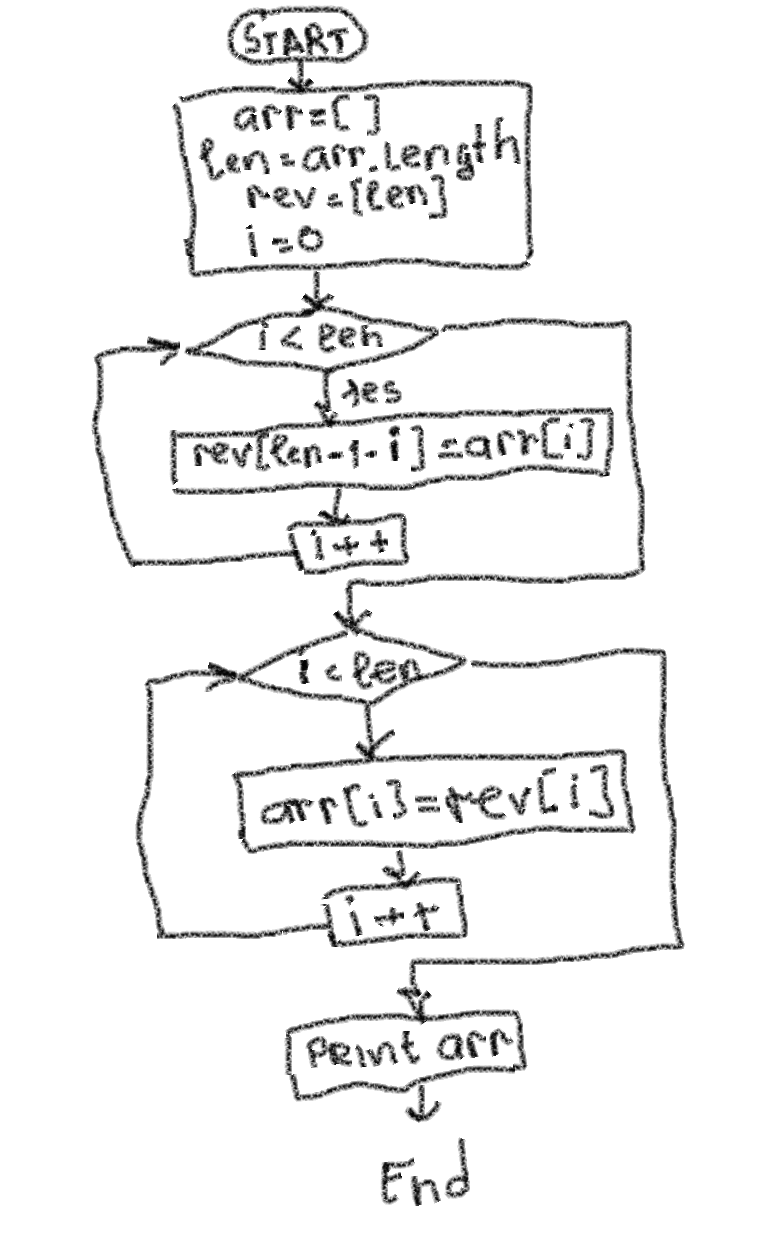 START
arr=[ ]
len=arr.length
rev=[len]
i=0
i < len
Yes
rev[len-1-i]=arr[i]
i++
i < len
arr[i]=rev[i]
i++
Print arr
End